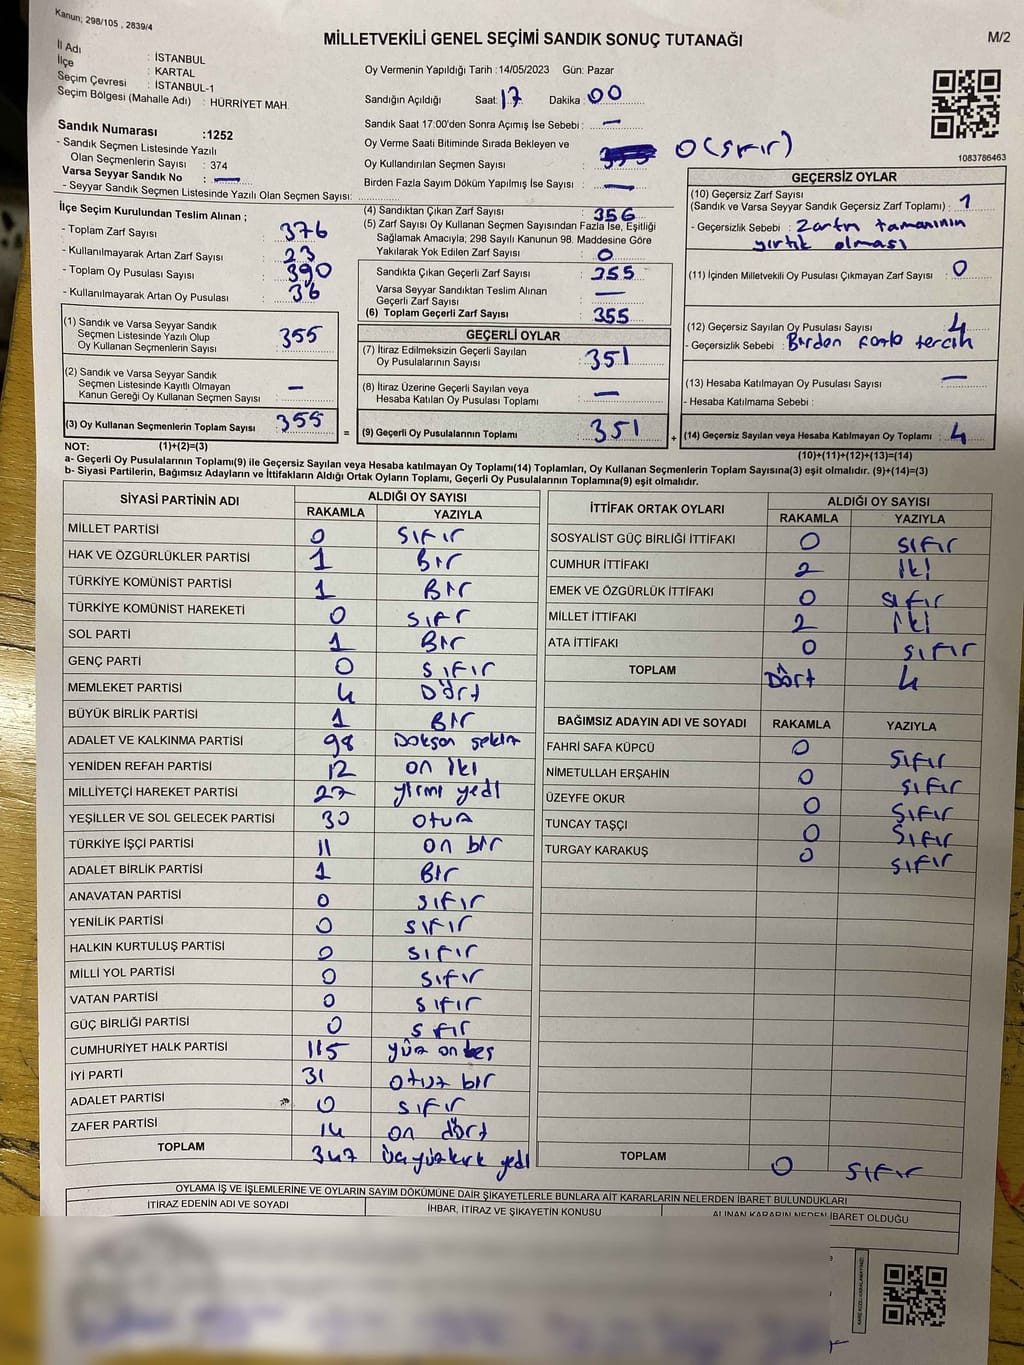 Kanun; 298/105 , 2839/4
MİLLETVEKİLİ GENEL SEÇİMİ SANDIK SONUÇ TUTANAĞI
M/2
İl Adı : İSTANBUL
İlçe : KARTAL
Seçim Çevresi : İSTANBUL-1
Seçim Bölgesi (Mahalle Adı) : HÜRRİYET MAH.
Sandık Numarası :1252
- Sandık Seçmen Listesinde Yazılı
Olan Seçmenlerin Sayısı : 374
Varsa Seyyar Sandık No : —
- Seyyar Sandık Seçmen Listesinde Yazılı Olan Seçmen Sayısı:
Oy Vermenin Yapıldığı Tarih :14/05/2023 Gün: Pazar
Sandığın Açıldığı Saat: 17 Dakika : 00
Sandık Saat 17:00'den Sonra Açımış İse Sebebi : —
Oy Verme Saati Bitiminde Sırada Bekleyen ve
Oy Kullandırılan Seçmen Sayısı : 0 (sıfır)
Birden Fazla Sayım Döküm Yapılmış İse Sayısı : —
1083786463
İlçe Seçim Kurulundan Teslim Alınan ;
- Toplam Zarf Sayısı : 376
- Kullanılmayarak Artan Zarf Sayısı : 23
- Toplam Oy Pusulası Sayısı : 390
- Kullanılmayarak Artan Oy Pusulası : 36
(1) Sandık ve Varsa Seyyar Sandık
Seçmen Listesinde Yazılı Olup
Oy Kullanan Seçmenlerin Sayısı : 355
(2) Sandık ve Varsa Seyyar Sandık
Seçmen Listesinde Kayıtlı Olmayan
Kanun Gereği Oy Kullanan Seçmen Sayısı : —
(3) Oy Kullanan Seçmenlerin Toplam Sayısı : 355
(4) Sandıktan Çıkan Zarf Sayısı : 356
(5) Zarf Sayısı Oy Kullanan Seçmen Sayısından Fazla İse, Eşitliği
Sağlamak Amacıyla; 298 Sayılı Kanunun 98. Maddesine Göre
Yakılarak Yok Edilen Zarf Sayısı : 0
Sandıkta Çıkan Geçerli Zarf Sayısı : 355
Varsa Seyyar Sandıktan Teslim Alınan
Geçerli Zarf Sayısı : —
(6) Toplam Geçerli Zarf Sayısı : 355
GEÇERLİ OYLAR
(7) İtiraz Edilmeksizin Geçerli Sayılan
Oy Pusulalarının Sayısı : 351
(8) İtiraz Üzerine Geçerli Sayılan veya
Hesaba Katılan Oy Pusulaları Toplamı : —
= (9) Geçerli Oy Pusulalarının Toplamı : 351 +
GEÇERSİZ OYLAR
(10) Geçersiz Zarf Sayısı
(Sandık ve Varsa Seyyar Sandık Geçersiz Zarf Toplamı) : 1
- Geçersizlik Sebebi : Zarfın tamamının
yırtık olması
(11) İçinden Milletvekili Oy Pusulası Çıkmayan Zarf Sayısı : 0
(12) Geçersiz Sayılan Oy Pusulası Sayısı : 4
- Geçersizlik Sebebi : Birden fazla tercih
(13) Hesaba Katılmayan Oy Pusulası Sayısı : —
- Hesaba Katılmama Sebebi :
(14) Geçersiz Sayılan veya Hesaba Katılmayan Oy Toplamı : 4
NOT: (1)+(2)=(3) (10)+(11)+(12)+(13)=(14)
a- Geçerli Oy Pusulalarının Toplamı(9) ile Geçersiz Sayılan veya Hesaba katılmayan Oy Toplamı(14) Toplamları, Oy Kullanan Seçmenlerin Toplam Sayısına(3) eşit olmalıdır. (9)+(14)=(3)
b- Siyasi Partilerin, Bağımsız Adayların ve İttifakların Aldığı Ortak Oyların Toplamı, Geçerli Oy Pusulalarının Toplamına(9) eşit olmalıdır.
SİYASİ PARTİNİN ADI ALDIĞI OY SAYISI
RAKAMLA YAZIYLA
MİLLET PARTİSİ 0 sıfır
HAK VE ÖZGÜRLÜKLER PARTİSİ 1 Bir
TÜRKİYE KOMÜNİST PARTİSİ 1 Bir
TÜRKİYE KOMÜNİST HAREKETİ 0 sıfır
SOL PARTİ 1 Bir
GENÇ PARTİ 0 sıfır
MEMLEKET PARTİSİ 4 Dört
BÜYÜK BİRLİK PARTİSİ 1 Bir
ADALET VE KALKINMA PARTİSİ 98 Doksan sekiz
YENİDEN REFAH PARTİSİ 12 on iki
MİLLİYETÇİ HAREKET PARTİSİ 27 yirmi yedi
YEŞİLLER VE SOL GELECEK PARTİSİ 30 otuz
TÜRKİYE İŞÇİ PARTİSİ 11 on bir
ADALET BİRLİK PARTİSİ 1 Bir
ANAVATAN PARTİSİ 0 sıfır
YENİLİK PARTİSİ 0 sıfır
HALKIN KURTULUŞ PARTİSİ 0 sıfır
MİLLİ YOL PARTİSİ 0 sıfır
VATAN PARTİSİ 0 sıfır
GÜÇ BİRLİĞİ PARTİSİ 0 sıfır
CUMHURİYET HALK PARTİSİ 115 yüz on beş
İYİ PARTİ 31 otuz bir
ADALET PARTİSİ 0 sıfır
ZAFER PARTİSİ 14 on dört
TOPLAM 347 üçyüzkırk yedi
İTTİFAK ORTAK OYLARI ALDIĞI OY SAYISI
RAKAMLA YAZIYLA
SOSYALİST GÜÇ BİRLİĞİ İTTİFAKI 0 sıfır
CUMHUR İTTİFAKI 2 iki
EMEK VE ÖZGÜRLÜK İTTİFAKI 0 sıfır
MİLLET İTTİFAKI 2 iki
ATA İTTİFAKI 0 sıfır
TOPLAM Dört 4
BAĞIMSIZ ADAYIN ADI VE SOYADI RAKAMLA YAZIYLA
FAHRİ SAFA KÜPCÜ 0 sıfır
NİMETULLAH ERŞAHİN 0 sıfır
ÜZEYFE OKUR 0 sıfır
TUNCAY TAŞÇI 0 sıfır
TURGAY KARAKUŞ 0 sıfır
TOPLAM 0 sıfır
OYLAMA İŞ VE İŞLEMLERİNE VE OYLARIN SAYIM DÖKÜMÜNE DAİR ŞİKAYETLERLE BUNLARA AİT KARARLARIN NELERDEN İBARET BULUNDUKLARI
İTİRAZ EDENİN ADI VE SOYADI İHBAR, İTİRAZ VE ŞİKAYETİN KONUSU ALINAN KARARIN NEDEN İBARET OLDUĞU